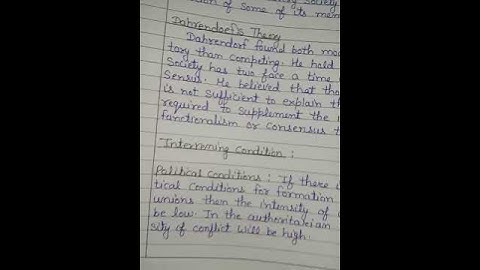 of some of its mem
Dahrendoef's Theory
Dahrendorf found both mod
tory than competing. He hold
Society has two face a time
Sensus. He believed that tho
is not sufficient to explain th
required to supplement the
functionalism or consensus t
Intervining Condition :
Political Conditions : If there
tical conditions for formation
unions then the intensity of
be low. In the authoritarian
sity of conflict will be high.